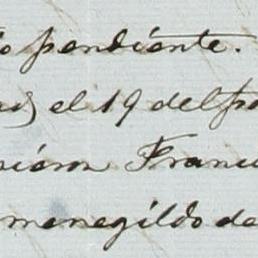 o pendiente.
el 19 del
Franc
menegildo de